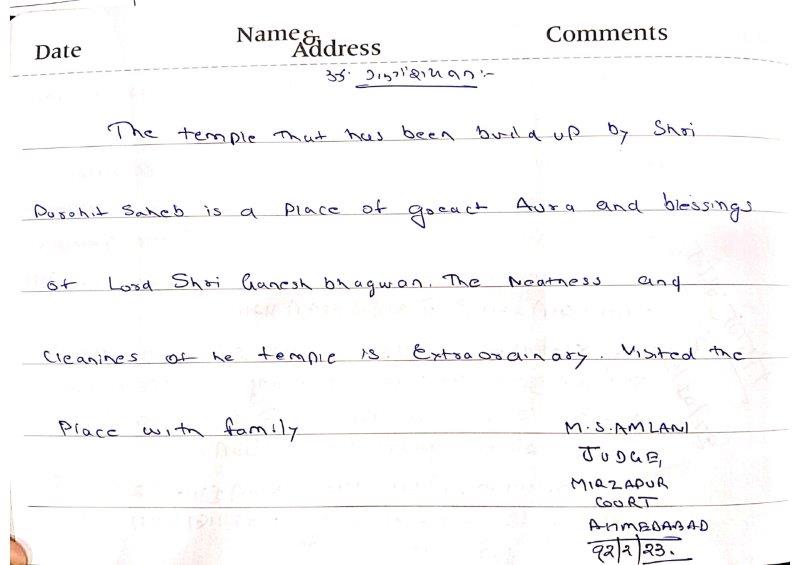 Date Name & Address Comments
ૐ ગં ગણપતયે નમઃ :-
The temple that has been build up by Shri
Purohit Saheb is a Place of goeact Aura and blessings
of Lord Shri Ganesh bhagwan. The Neatness and
Cleanines of he temple is Extraordinary. Visited the
Place with family
M.S. AMLANI
JUDGE,
MIRZAPUR
COURT
AHMEDABAD
12/2/23.